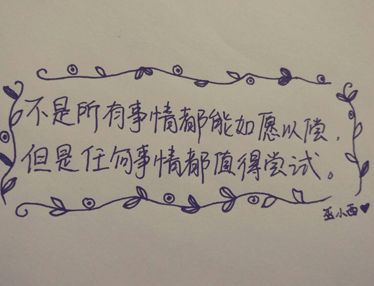 不是所有事情都能如愿以偿，
但是任何事情都值得尝试。
巫小西♥